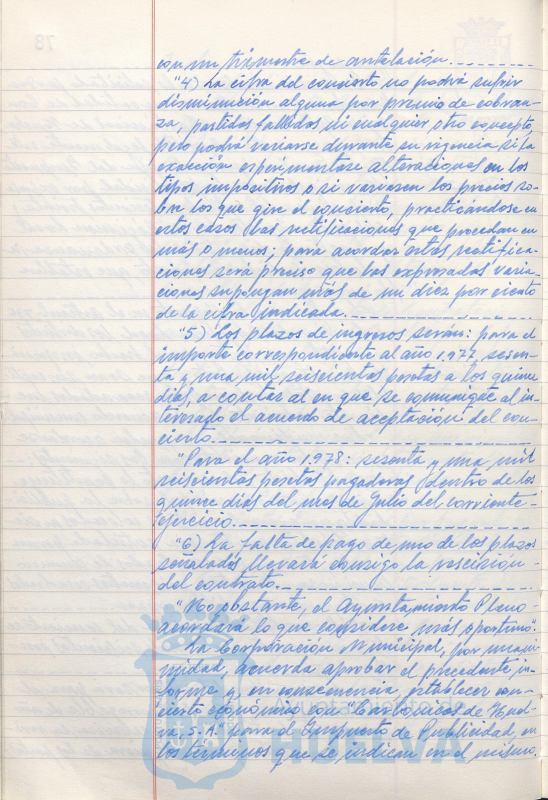 con un trimestre de antelación.
"4) La cifra del concierto no podrá sufrir
disminución alguna por premio de cobran-
za, partidas fallidas ni cualquier otro concepto,
pero podrá variarse durante su vigencia si la
exacción experimentase alteraciones en los
tipos impositivos o si variasen los precios so-
bre los que gire el concierto, practicándose en
estos casos las rectificaciones que procedan en
más o menos; para acordar estas rectifica-
ciones será preciso que las expresadas varia-
ciones supongan más de un diez por ciento
de la cifra indicada.
"5) Los plazos de ingresos serán: para el
importe correspondiente al año 1.977, sesen-
ta y una mil seiscientas pesetas a los quince
días, a contar al en que se comunique al in-
teresado el acuerdo de aceptación del con-
cierto.
"Para el año 1.978: sesenta y una mil
seiscientas pesetas pagaderas dentro de los
quince días del mes de Julio del corriente
ejercicio.
"6) La falta de pago de uno de los plazos
señalados llevará consigo la rescisión
del contrato.
"No obstante, el Ayuntamiento Pleno
acordará lo que considere más oportuno".
La Corporación Municipal, por unani-
midad, acuerda aprobar el precedente in-
forme y, en consecuencia, establecer con-
cierto económico con "Carboquímica de Huel-
va, S.A." para el Impuesto de Publicidad, en
los términos que se indican en el mismo.
78
HUELVA